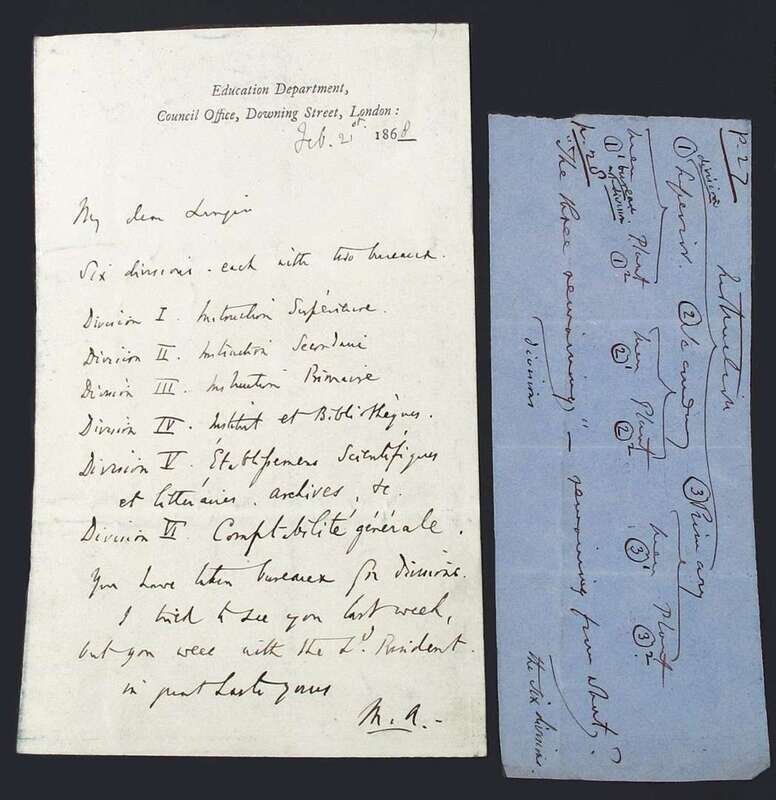 Education Department,
Council Office, Downing Street, London:
Feb. 21st. 1868
My dear Lingen
Six divisions. each with two bureaux.
Division I. Instruction Supérieure.
Division II. Instruction Secondaire
Division III. Instruction Primaire
Division IV. Institut et Bibliothèques.
Division V. Établissemens Scientifiques
et littéraires, archives, &c.
Division VI. Comptabilité générale.
You have taken bureaux for divisions.
I tried to see you last week,
but you were with the Ld. President.
in great haste yours
M. A.-
p. 27
Instruction
division
① Superior. ② Secondary ③ Primary
Men Plant Men Plant Men Plant
①¹ ①² ②¹ ②² ③¹ ③²
bureau
of division
p. 28
"The three remaining" – remaining from what?
divisions
the six divisions.